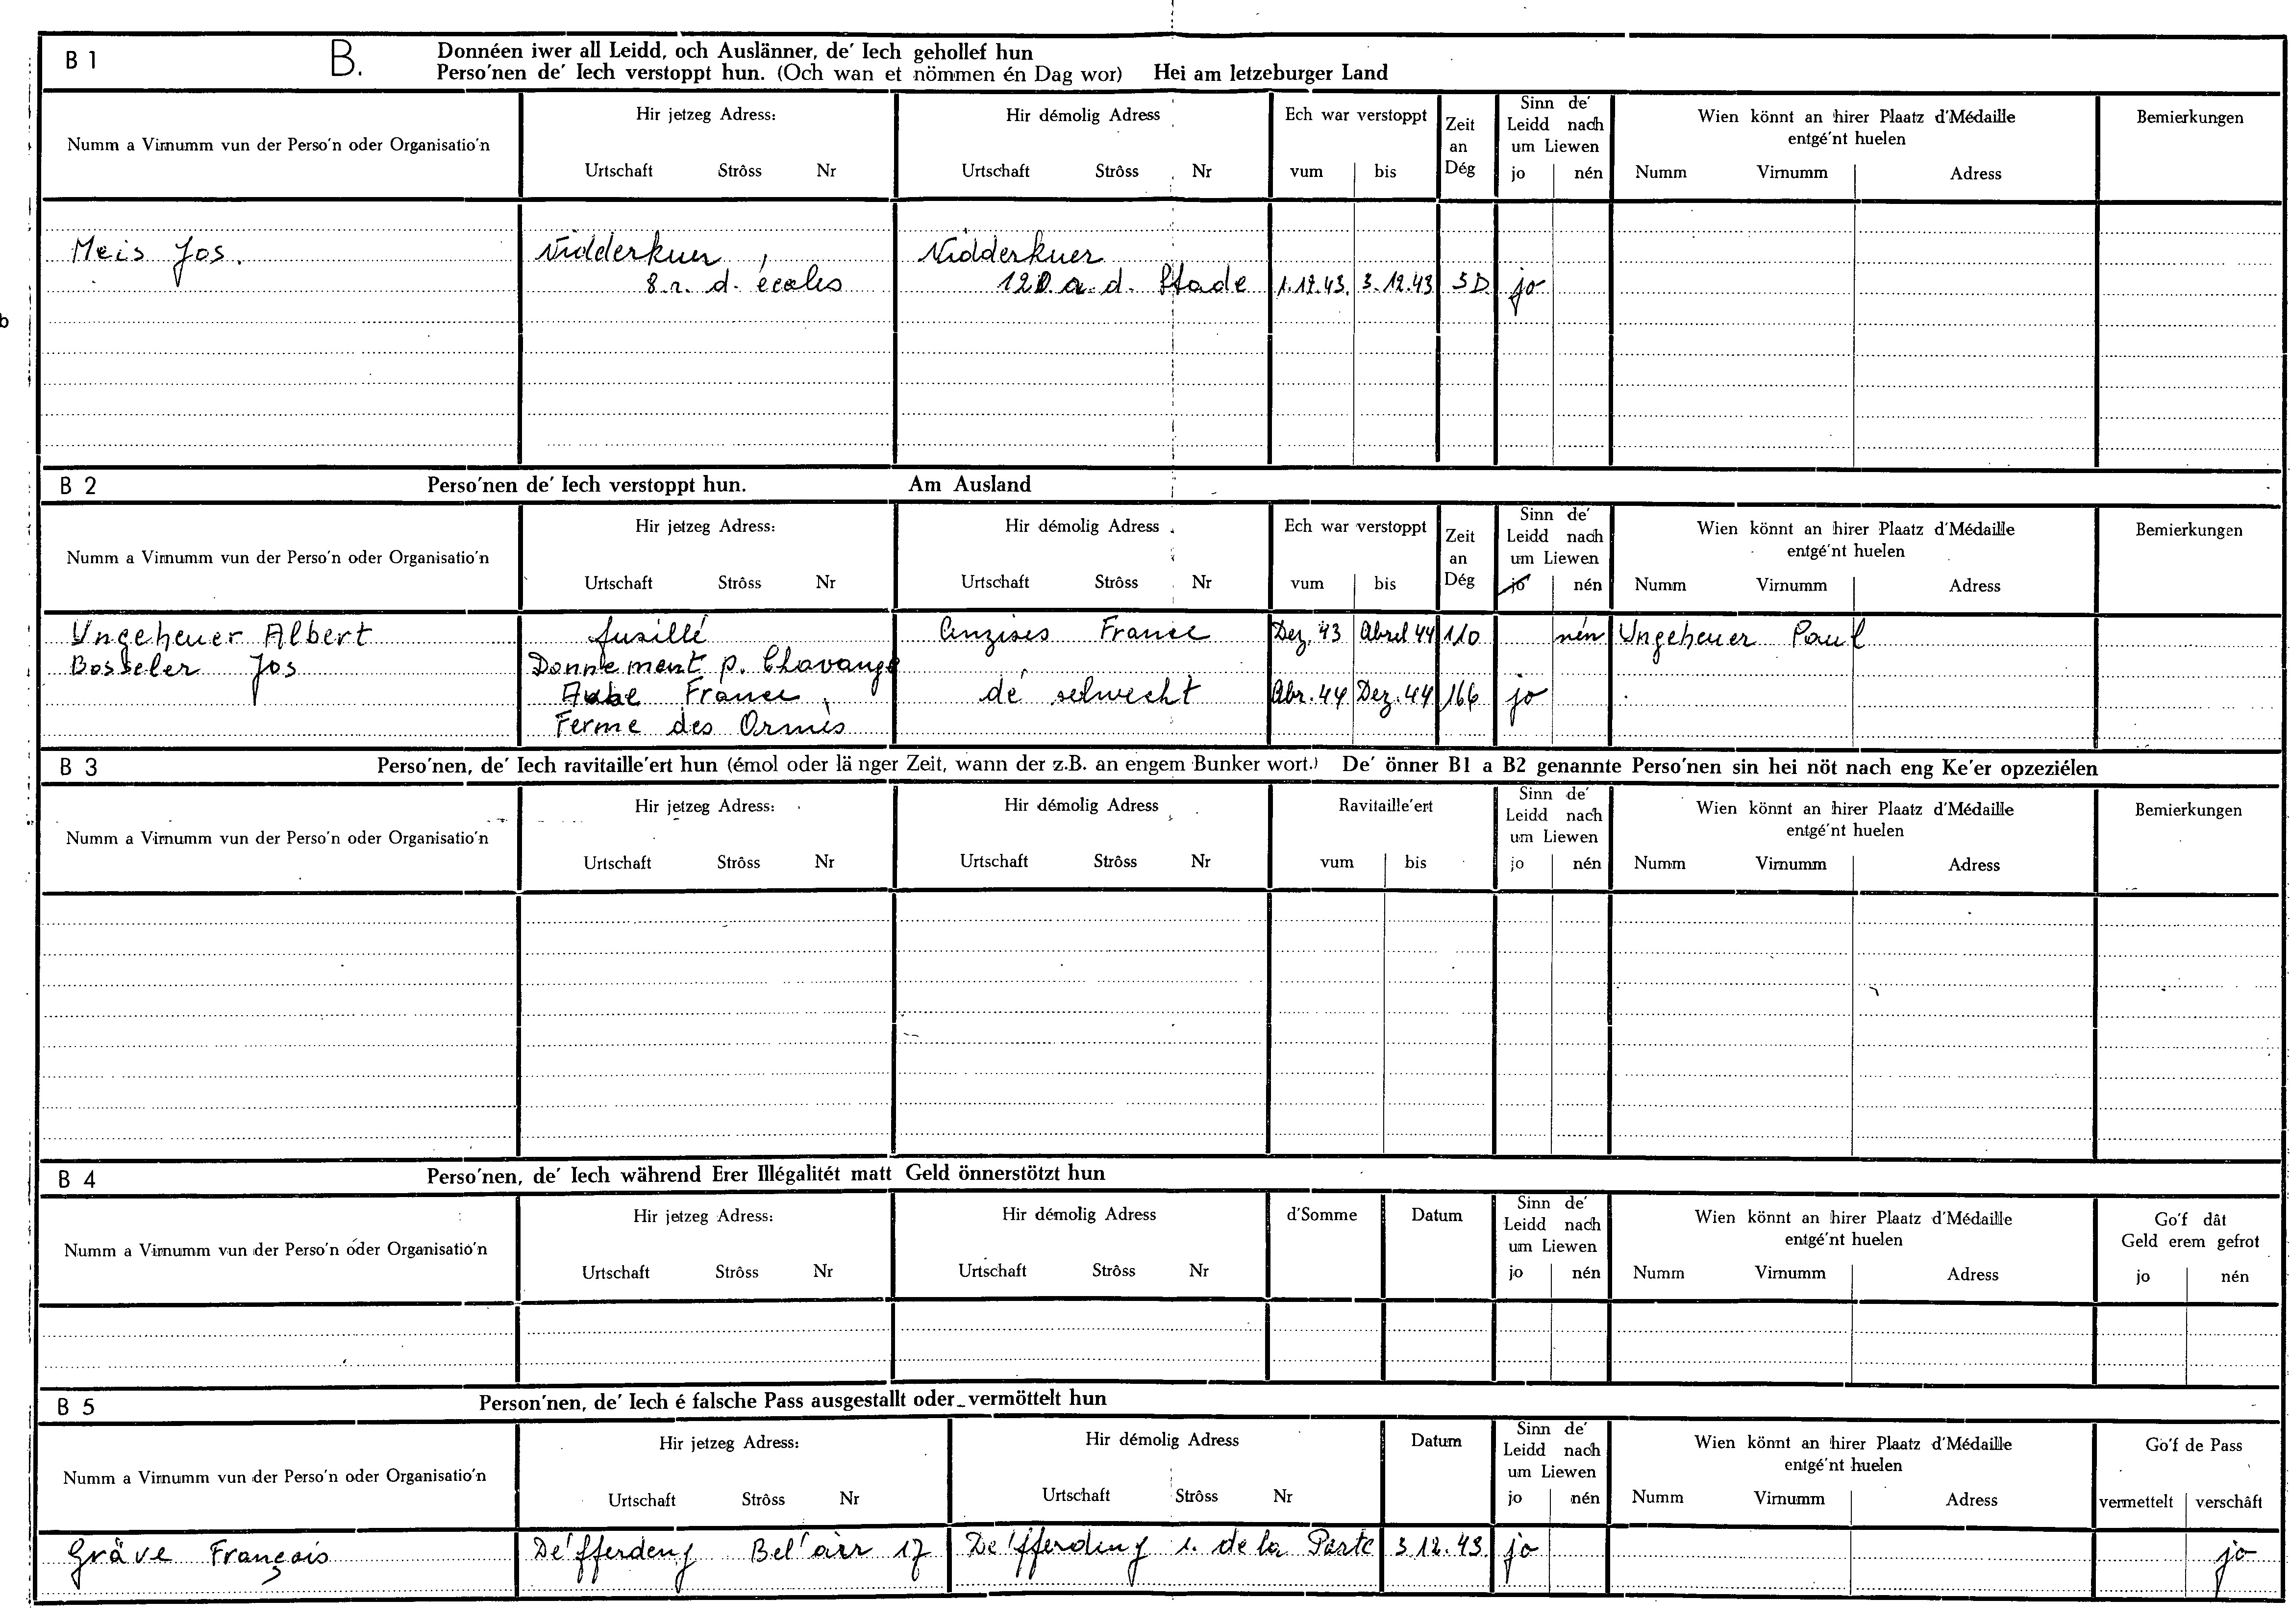 B 1 B. Donnéen iwer all Leidd, och Auslänner, de' Iech gehollef hun
Perso'nen de' Iech verstoppt hun. (Och wan et nömmen én Dag wor) Hei am letzeburger Land
Numm a Virnumm vun der Perso'n oder Organisatio'n
Hir jetzeg Adress:
Urtschaft Strôss Nr
Hir démolig Adress
Urtschaft Strôss Nr
Ech war verstoppt
vum bis
Zeit
an
Dég
Sinn de'
Leidd nach
um Liewen
jo nén
Wien könnt an hirer Plaatz d'Médaille
entgé'nt huelen
Numm Virnumm Adress
Bemierkungen
Meis Jos. Nidderkuer, Nidderkuer
8 r. d. écoles 120 a. d. Stade 1.12.43. 3.12.43 3D jo
b
B 2 Perso'nen de' Iech verstoppt hun. Am Ausland
Numm a Virnumm vun der Perso'n oder Organisatio'n
Hir jetzeg Adress:
Urtschaft Strôss Nr
Hir démolig Adress
Urtschaft Strôss Nr
Ech war verstoppt
vum bis
Zeit
an
Dég
Sinn de'
Leidd nach
um Liewen
jo nén
Wien könnt an hirer Plaatz d'Médaille
entgé'nt huelen
Numm Virnumm Adress
Bemierkungen
Ungeheuer Albert fusillé France Dez. 43 Abril 44 110 nén Ungeheuer Paul
Bosseler Jos Donnement p. Chavange
Aube France, de' selwecht Abr. 44 Dez. 44 166 jo
Ferme des Ormes
B 3 Perso'nen, de' Iech ravitaille'ert hun (émol oder länger Zeit, wann der z.B. an engem Bunker wort.) De' önner B1 a B2 genannte Perso'nen sin hei nöt nach eng Ke'er opzeziélen
Numm a Virnumm vun der Perso'n oder Organisatio'n
Hir jetzeg Adress:
Urtschaft Strôss Nr
Hir démolig Adress
Urtschaft Strôss Nr
Ravitaille'ert
vum bis
Sinn de'
Leidd nach
um Liewen
jo nén
Wien könnt an hirer Plaatz d'Médaille
entgé'nt huelen
Numm Virnumm Adress
Bemierkungen
B 4 Perso'nen, de' Iech während Erer Illégalitét matt Geld önnerstötzt hun
Numm a Virnumm vun der Perso'n oder Organisatio'n
Hir jetzeg Adress:
Urtschaft Strôss Nr
Hir démolig Adress
Urtschaft Strôss Nr
d'Somme
Datum
Sinn de'
Leidd nach
um Liewen
jo nén
Wien könnt an hirer Plaatz d'Médaille
entgé'nt huelen
Numm Virnumm Adress
Go'f dât
Geld erem gefrot
jo nén
B 5 Person'nen, de' Iech é falsche Pass ausgestallt oder vermöttelt hun
Numm a Virnumm vun der Perso'n oder Organisatio'n
Hir jetzeg Adress:
Urtschaft Strôss Nr
Hir démolig Adress
Urtschaft Strôss Nr
Datum
Sinn de'
Leidd nach
um Liewen
jo nén
Wien könnt an hirer Plaatz d'Médaille
entgé'nt huelen
Numm Virnumm Adress
Go'f de Pass
vermettelt verschâft
Gräve François De'fferdeng Bel'air 17 De'fferdeng r. de la Poste 3.12.43. jo jo